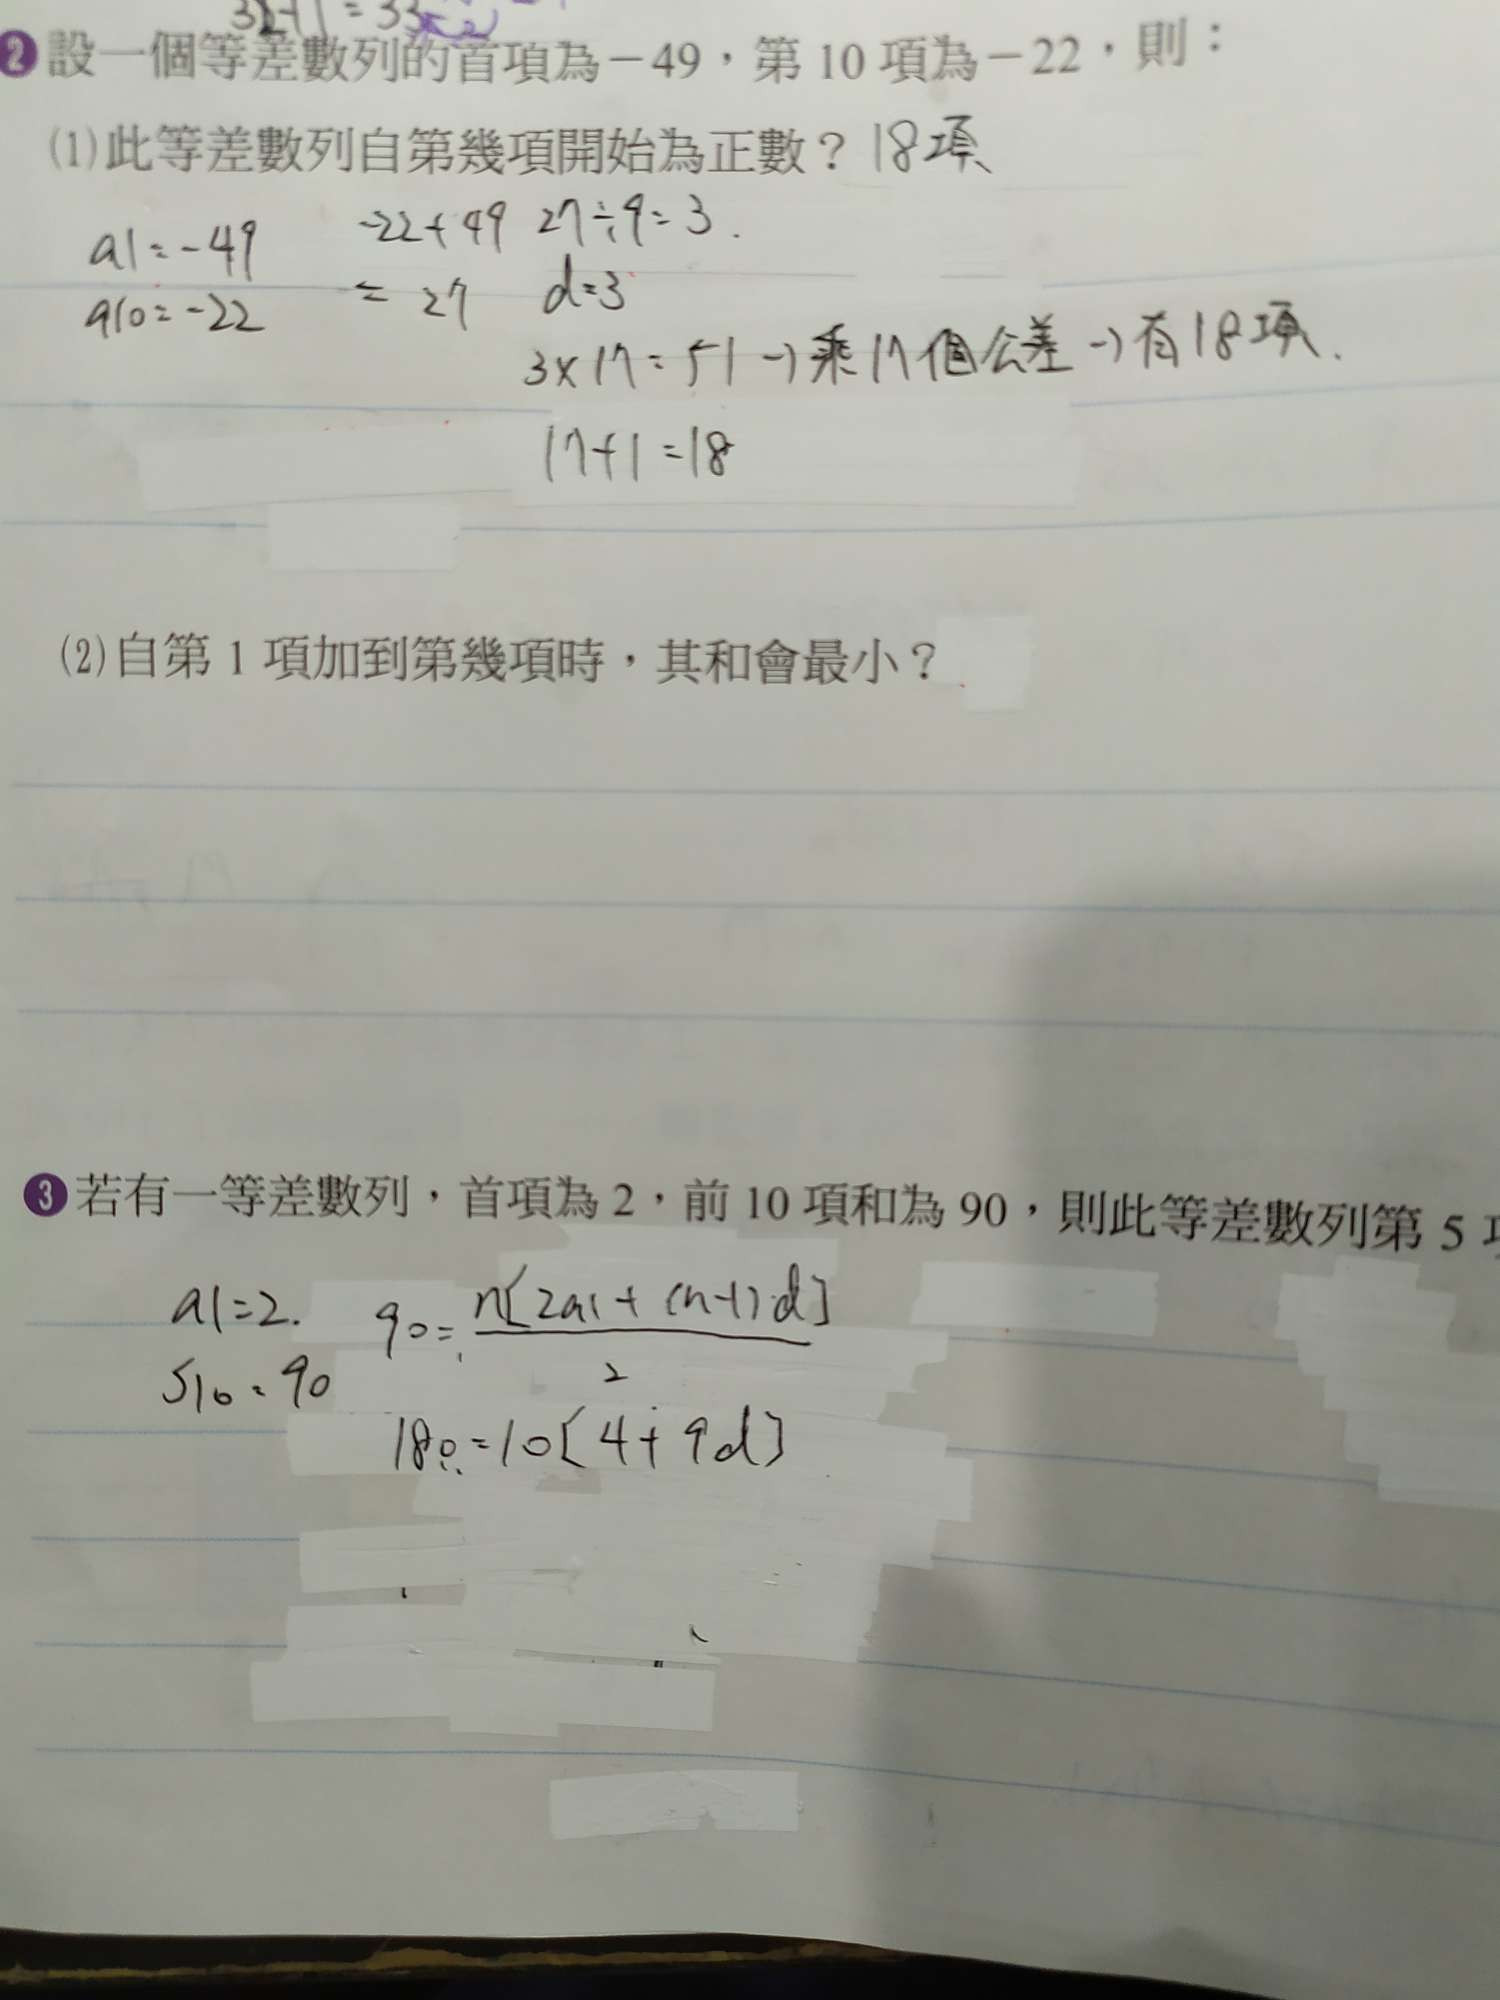 3x+1=33
❷設一個等差數列的首項為－49，第 10 項為－22，則：
(1)此等差數列自第幾項開始為正數？18項
a1=-49 -22+49 27÷9=3.
a10=-22 =27 d=3
3×17=51→乘17個公差→有18項.
17+1=18
(2)自第 1 項加到第幾項時，其和會最小？
❸若有一等差數列，首項為 2，前 10 項和為 90，則此等差數列第 5
a1=2. 90=n[2a1+(n-1)d]
S10=90 2
180=10[4+9d]